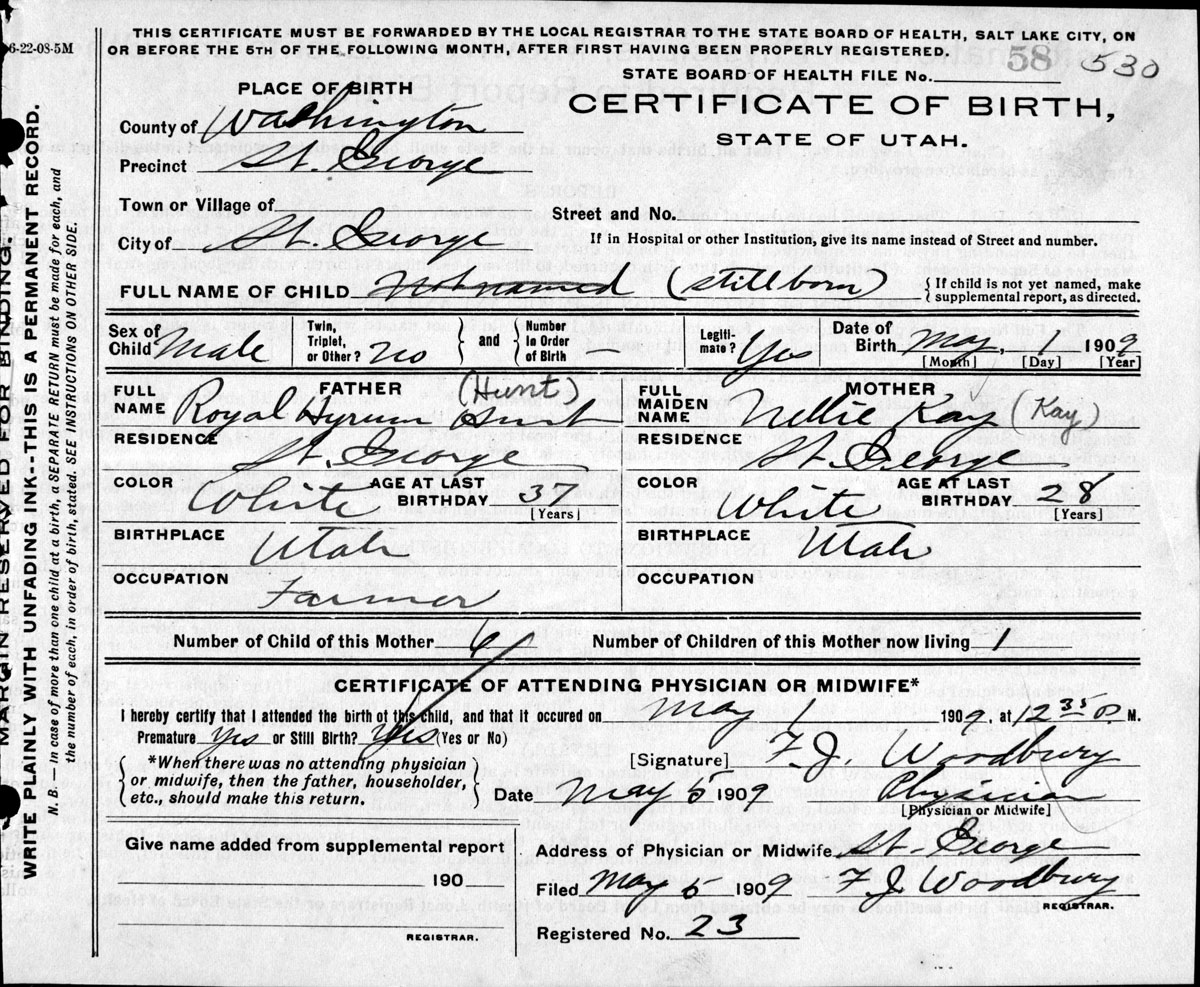 6-22-08-5M
THIS CERTIFICATE MUST BE FORWARDED BY THE LOCAL REGISTRAR TO THE STATE BOARD OF HEALTH, SALT LAKE CITY, ON
OR BEFORE THE 5TH OF THE FOLLOWING MONTH, AFTER FIRST HAVING BEEN PROPERLY REGISTERED.
58 530
STATE BOARD OF HEALTH FILE No.
PLACE OF BIRTH
CERTIFICATE OF BIRTH,
STATE OF UTAH.
County of Washington
Precinct St. George
Town or Village of
Street and No.
City of St. George
If in Hospital or other Institution, give its name instead of Street and number.
FULL NAME OF CHILD Not named (stillborn) { If child is not yet named, make
supplemental report, as directed.
Sex of Child Male
Twin, Triplet, or Other? no } and { Number In Order of Birth —
Legiti- mate? Yes
Date of Birth May, 1 1909
[Month] [Day] [Year]
FULL NAME FATHER (Hunt)
Royal Hyrum Hunt
FULL MAIDEN NAME MOTHER
Nellie Kay (Kay)
RESIDENCE St. George
RESIDENCE St. George
COLOR White AGE AT LAST BIRTHDAY 37 [Years]
COLOR White AGE AT LAST BIRTHDAY 28 [Years]
BIRTHPLACE Utah
BIRTHPLACE Utah
OCCUPATION Farmer
OCCUPATION
Number of Child of this Mother Number of Children of this Mother now living 1
CERTIFICATE OF ATTENDING PHYSICIAN OR MIDWIFE*
I hereby certify that I attended the birth of this child, and that it occured on May 1 1909, at 12 35 P. M.
Premature Yes or Still Birth? Yes (Yes or No)
*When there was no attending physician
or midwife, then the father, householder,
etc., should make this return.
[Signature] F. J. Woodbury
Date May 5 1909 Physician
[Physician or Midwife]
Give name added from supplemental report
190
REGISTRAR.
Address of Physician or Midwife St. George
Filed May 5 1909 F J Woodbury
REGISTRAR.
Registered No. 23
MARGIN RESERVED FOR BINDING.
WRITE PLAINLY WITH UNFADING INK--THIS IS A PERMANENT RECORD.
N. B. — In case of more than one child at a birth, a SEPARATE RETURN must be made for each, and
the number of each, in order of birth, stated. SEE INSTRUCTIONS ON OTHER SIDE.